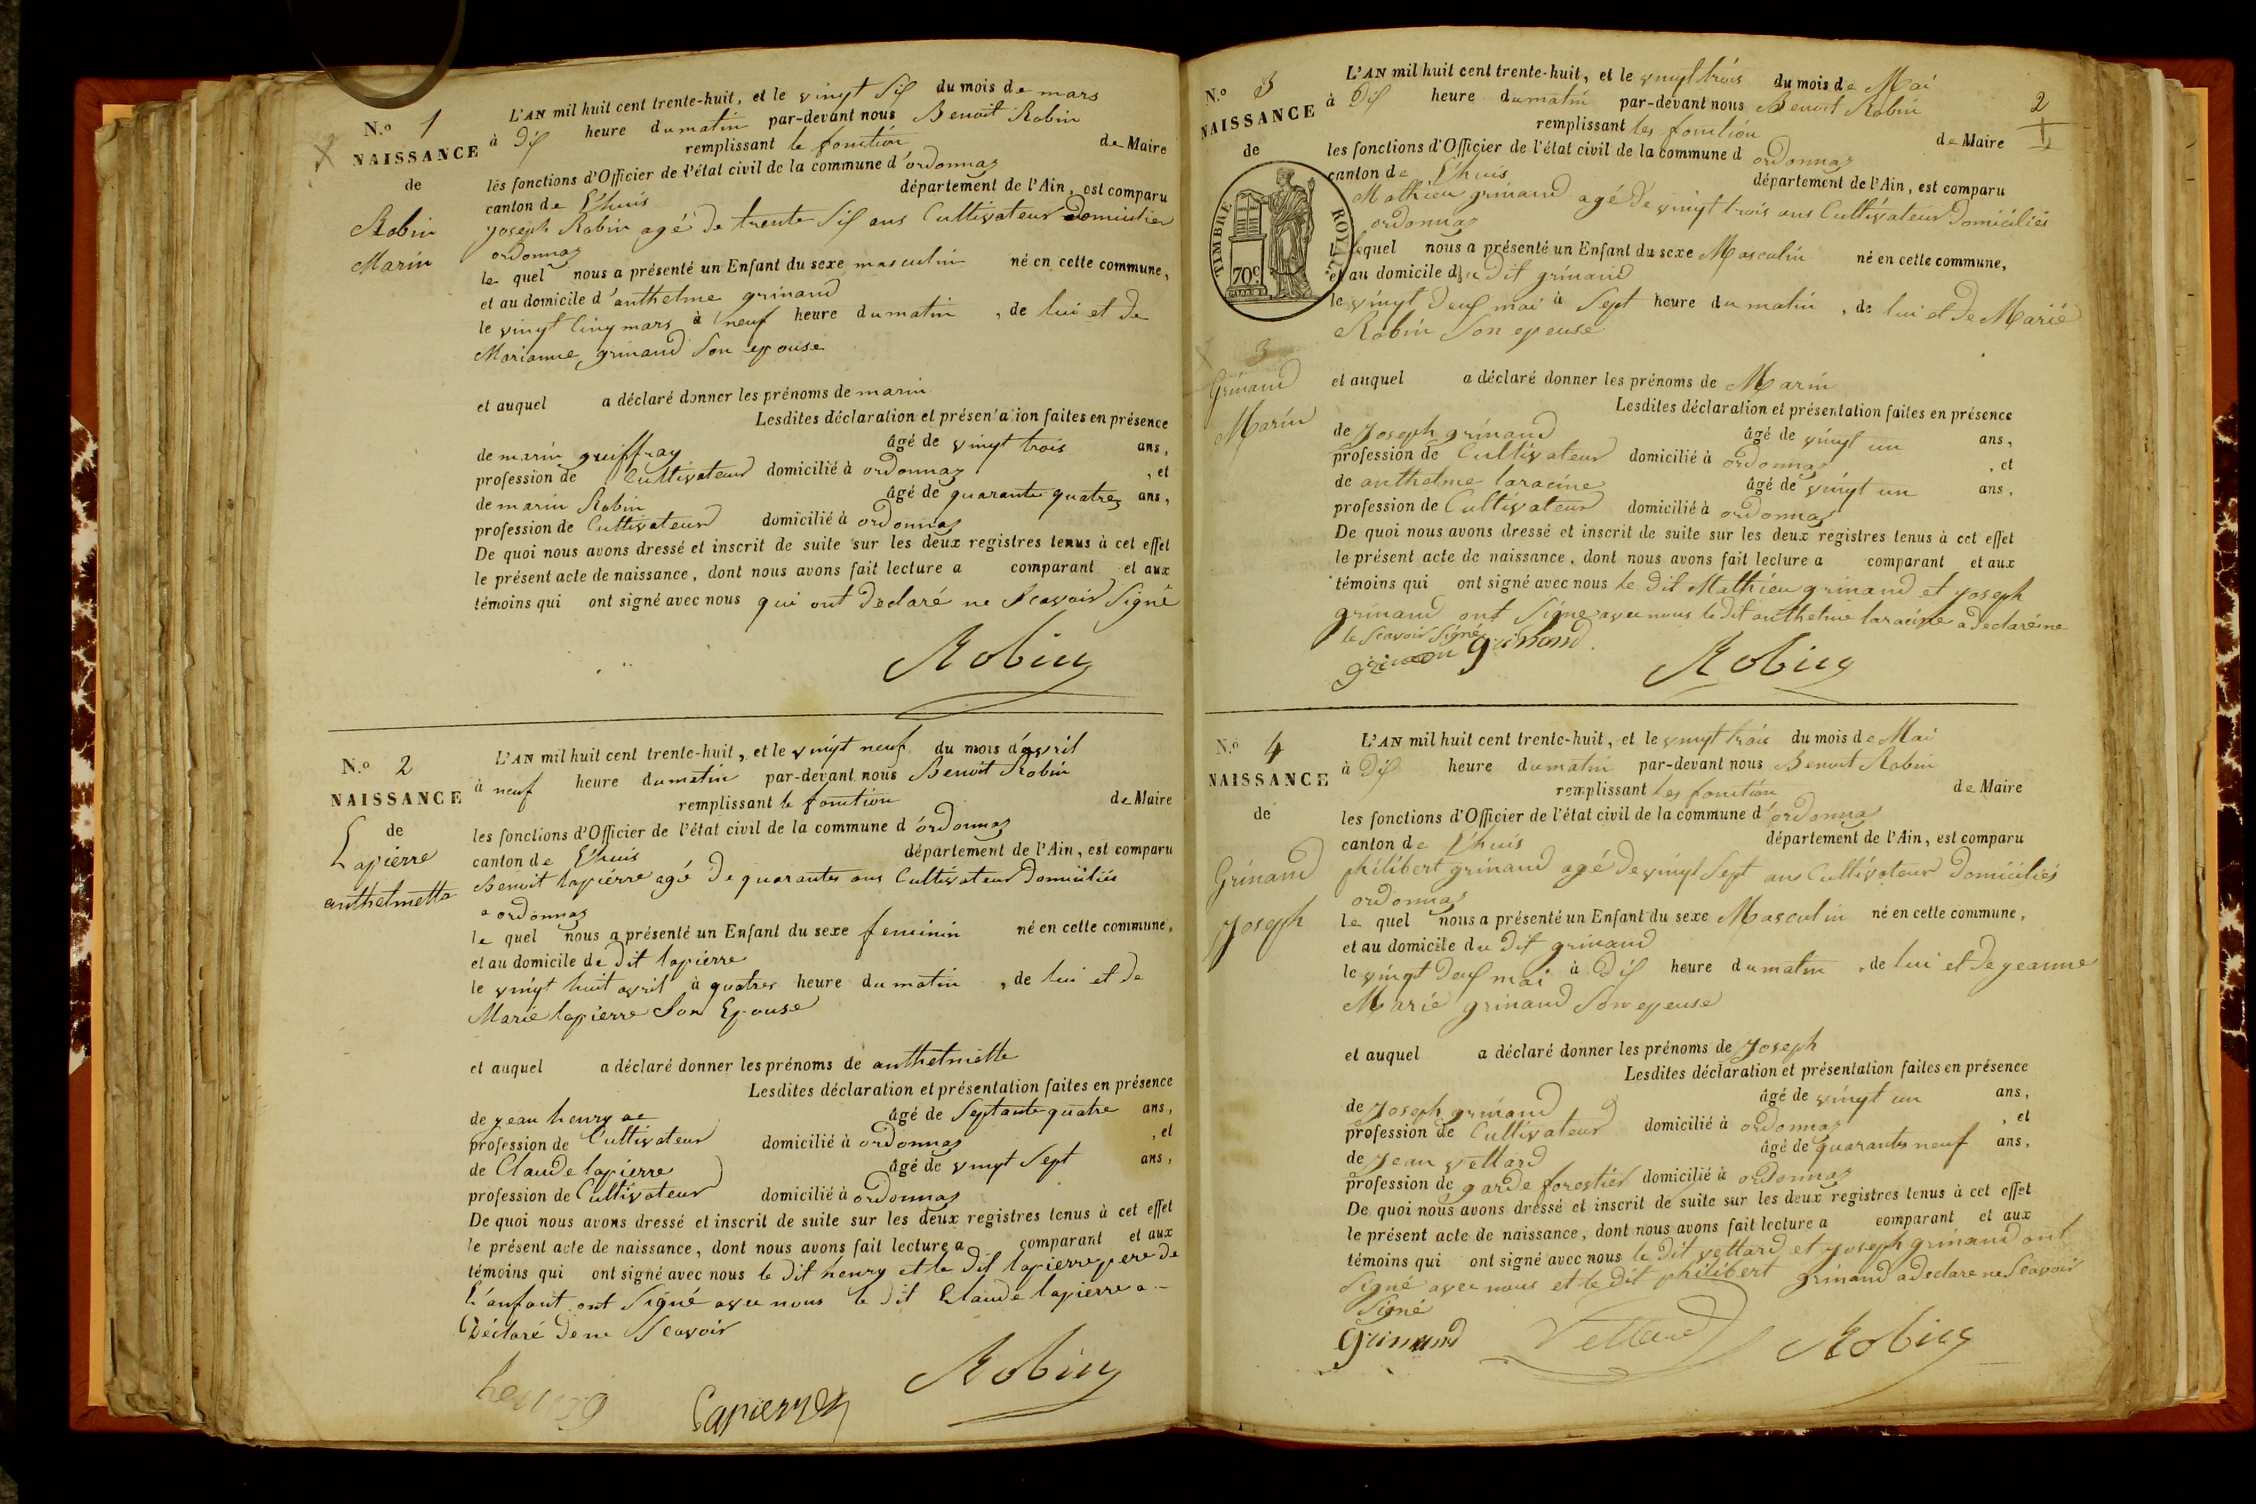 N.o 1
NAISSANCE
de
Robin
Marin
L'AN mil huit cent trente-huit, et le vingt Six du mois de mars
à Dix heure du matin par-devant nous Benoit Robin
remplissant le fonction de Maire
les fonctions d'Officier de l'état civil de la commune d'ordonnaz
canton de L'huis département de l'Ain, est comparu
joseph Robin agé de trente Six ans Cultivateur Domicilier
ordonnaz
le quel nous a présenté un Enfant du sexe masculin né en cette commune,
et au domicile d'anthelme grinand
le vingt Cinq mars à neuf heure du matin, de lui et de
Marianne grinand Son epouse
et auquel a déclaré donner les prénoms de marin
Lesdites déclaration et présentation faites en présence
de marin guiffray âgé de vingt trois ans,
profession de Cultivateur domicilié à ordonnaz, et
de marin Robin âgé de quarante quatre ans,
profession de Cultivateur domicilié à ordonnaz
De quoi nous avons dressé et inscrit de suite sur les deux registres tenus à cet effet
le présent acte de naissance, dont nous avons fait lecture a comparant et aux
témoins qui ont signé avec nous qui ont Declaré ne Scavoir Signé
Robin
N.o 2
NAISSANCE
de
Lapierre
anthelmette
L'AN mil huit cent trente-huit, et le vingt neuf du mois d'avril
à neuf heure du matin par-devant nous Benoit Robin
remplissant le fonction de Maire
les fonctions d'Officier de l'état civil de la commune d'ordonnaz
canton de L'huis département de l'Ain, est comparu
Benoit lapierre agé de quarante ans Cultivateur Domiciliés
a ordonnaz
le quel nous a présenté un Enfant du sexe feminin né en cette commune,
et au domicile de dit lapierre
le vingt huit avril à quatre heure du matin, de lui et de
Marie lapierre Son Epouse
et auquel a déclaré donner les prénoms de anthelmette
Lesdites déclaration et présentation faites en présence
de jean henry âgé de Septante quatre ans,
profession de Cultivateur domicilié à ordonnaz, et
de Claude lapierre âgé de vingt Sept ans,
profession de Cultivateur domicilié à ordonnaz
De quoi nous avons dressé et inscrit de suite sur les deux registres tenus à cet effet
le présent acte de naissance, dont nous avons fait lecture a comparant et aux
témoins qui ont signé avec nous le dit henry et le dit lapierre pere de
L'anfant ont Signé avec nous le dit Claude lapierre a
Déclaré de ne Scavoir
henry Lapierre Robin
2
N.o 3
NAISSANCE
de
TIMBRE ROYAL
70c
3
Grinand
Marin
L'AN mil huit cent trente-huit, et le vingt trois du mois de Mai
à Dix heure du matin par-devant nous Benoit Robin
remplissant les fonction de Maire
les fonctions d'Officier de l'état civil de la commune d ordonnaz
canton de L'huis département de l'Ain, est comparu
Mathieu grinand agé de vingt trois ans Cultivateur Domiciliés
ordonnaz
lequel nous a présenté un Enfant du sexe Masculin né en cette commune,
et au domicile du Dit grinand
le vingt Deux mai à Sept heure du matin, de lui et de Marie
Robin Son epeuse
et auquel a déclaré donner les prénoms de Marin
Lesdites déclaration et présentation faites en présence
de Joseph grinand âgé de vingt un ans,
profession de Cultivateur domicilié à ordonnaz, et
de anthelme laracine âgé de vingt un ans,
profession de Cultivateur domicilié à ordonnaz
De quoi nous avons dressé et inscrit de suite sur les deux registres tenus à cet effet
le présent acte de naissance, dont nous avons fait lecture a comparant et aux
témoins qui ont signé avec nous le dit Mathieu grinand et joseph
grinand ont Signe avec nous le dit anthelme laracine a declaré ne
le Scavoir Signé
grinand Robin
N.o 4
NAISSANCE
de
Grinand
Joseph
L'AN mil huit cent trente-huit, et le vingt trois du mois de Mai
à Dix heure du matin par-devant nous Benoit Robin
remplissant les fonction de Maire
les fonctions d'Officier de l'état civil de la commune d'ordonnaz
canton de L'huis département de l'Ain, est comparu
philibert grinand agé de vingt Sept ans Cultivateur Domiciliés
ordonnaz
le quel nous a présenté un Enfant du sexe Masculin né en cette commune,
et au domicile du Dit grinand
le vingt Deux mai à Dix heure du matin, de lui et de jeanne
Marie grinand Son epeuse
et auquel a déclaré donner les prénoms de Joseph
Lesdites déclaration et présentation faites en présence
de Joseph grinand âgé de vingt un ans,
profession de Cultivateur domicilié à ordonnaz, et
de Jean vettard âgé de quarante neuf ans,
profession de garde forestier domicilié à ordonnaz
De quoi nous avons dressé et inscrit de suite sur les deux registres tenus à cet effet
le présent acte de naissance, dont nous avons fait lecture a comparant et aux
témoins qui ont signé avec nous le dit vettard et joseph grinand ont
Signé avec nous et le dit philibert grinand a Declare ne Scavoir
Signé
Grinand Vettard Robin